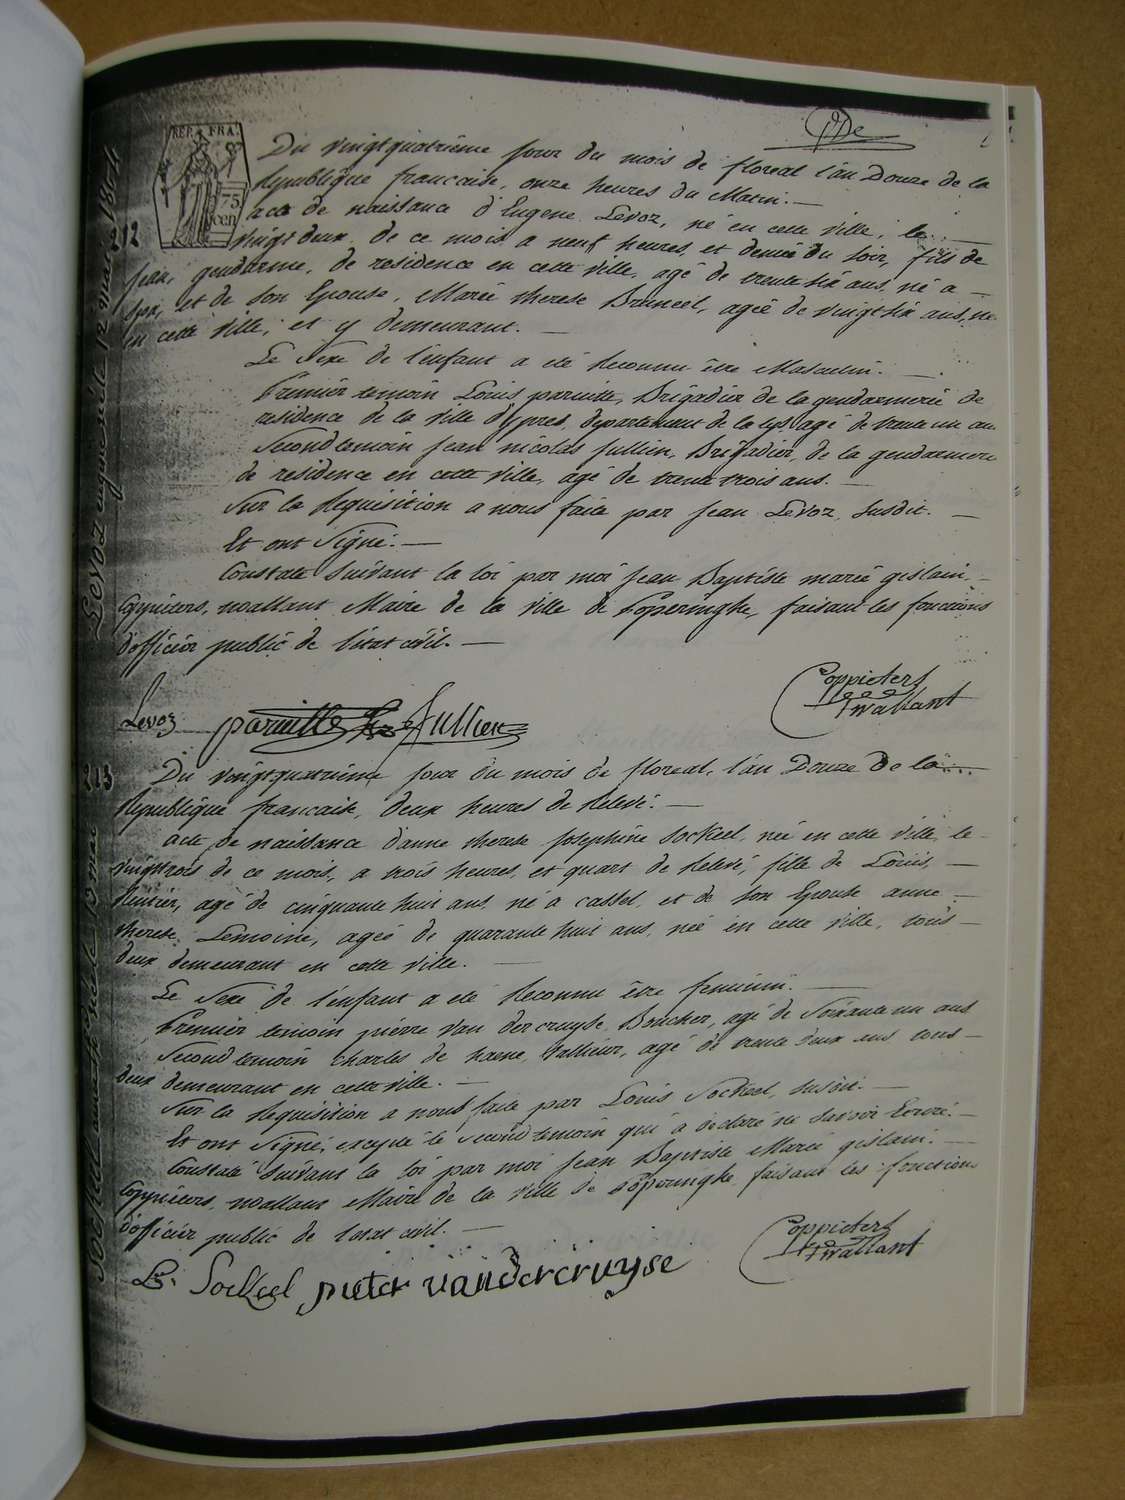 REP. FRA.
75
cen
Du vingtquatrième jour du mois de floreal l'an Douze de la
Republique francaise, onze heures du Matin. —
acte de naissance d'Eugene Levoz, né en cette ville, le
vingt deux de ce mois a neuf heures et demie du soir, fils de
jean, gendarme, de residence en cette ville, agé de trente six ans, né a —
spa, et de son Epouse, Marie therese Bruneel, agée de vingtsix ans, né
en cette ville, et y demeurant. —
Le Sexe de l'enfant a été Reconnu être Masculin. —
Premier temoin Louis paruitte, Brigadier de la gendarmerie de
residence de la ville d'ypres, departement de la lys agé de trente un an
Second temoin jean nicolas jullien, Brigadier, de la gendarmerie
de residence en cette ville, agé de trente trois ans. —
Sur la Requisition a nous faite par jean Levoz, susdit. —
Et ont Signé. —
Constaté suivant la loi par moi jean Baptiste marie gislain, —
Coppieters, wallant Maire de la ville de Poperinghe, faisant les fonctions
d'officier public de l'état civil. —
Coppieters
Wallant
Levoz paruitte jullien
212
Levoz eugene le 12 mai 1804
213
Du vingtquatrième jour du mois de floreal, l'an Douze de la
Republique francaise, deux heures de Relevé. —
acte de naissance d'anne therese josephine Sockeel, née en cette ville, le —
vingttrois de ce mois, a trois heures, et quart de Relevé, fille de Louis, —
Rentier, agé de cinquante huit ans, né à cassel, et de son Epouse anne —
therese Lemoine, agée de quarante huit ans, née en cette ville, tous —
deux demeurant en cette ville. —
Le Sexe de l'enfant a été Reconnu être feminin. —
Premier temoin pierre Van dercruyse, Boucher, agé de Soixante un ans
Second temoin charles de haene, agé de trente deux ans tous —
deux demeurant en cette ville. —
Sur la Requisition a nous faite par Louis Sockeel, susdit. —
Et ont Signé, excepté le second temoin qui à declaré ne savoir Ecrire. —
Constaté suivant la loi par moi jean Baptiste Marie gislain. —
Coppieters, wallant Maire de la ville de Poperinghe, faisant les fonctions
d'officier public de l'état civil. —
Coppieters
Wallant
Ls. Sockeel pieter vandercruyse